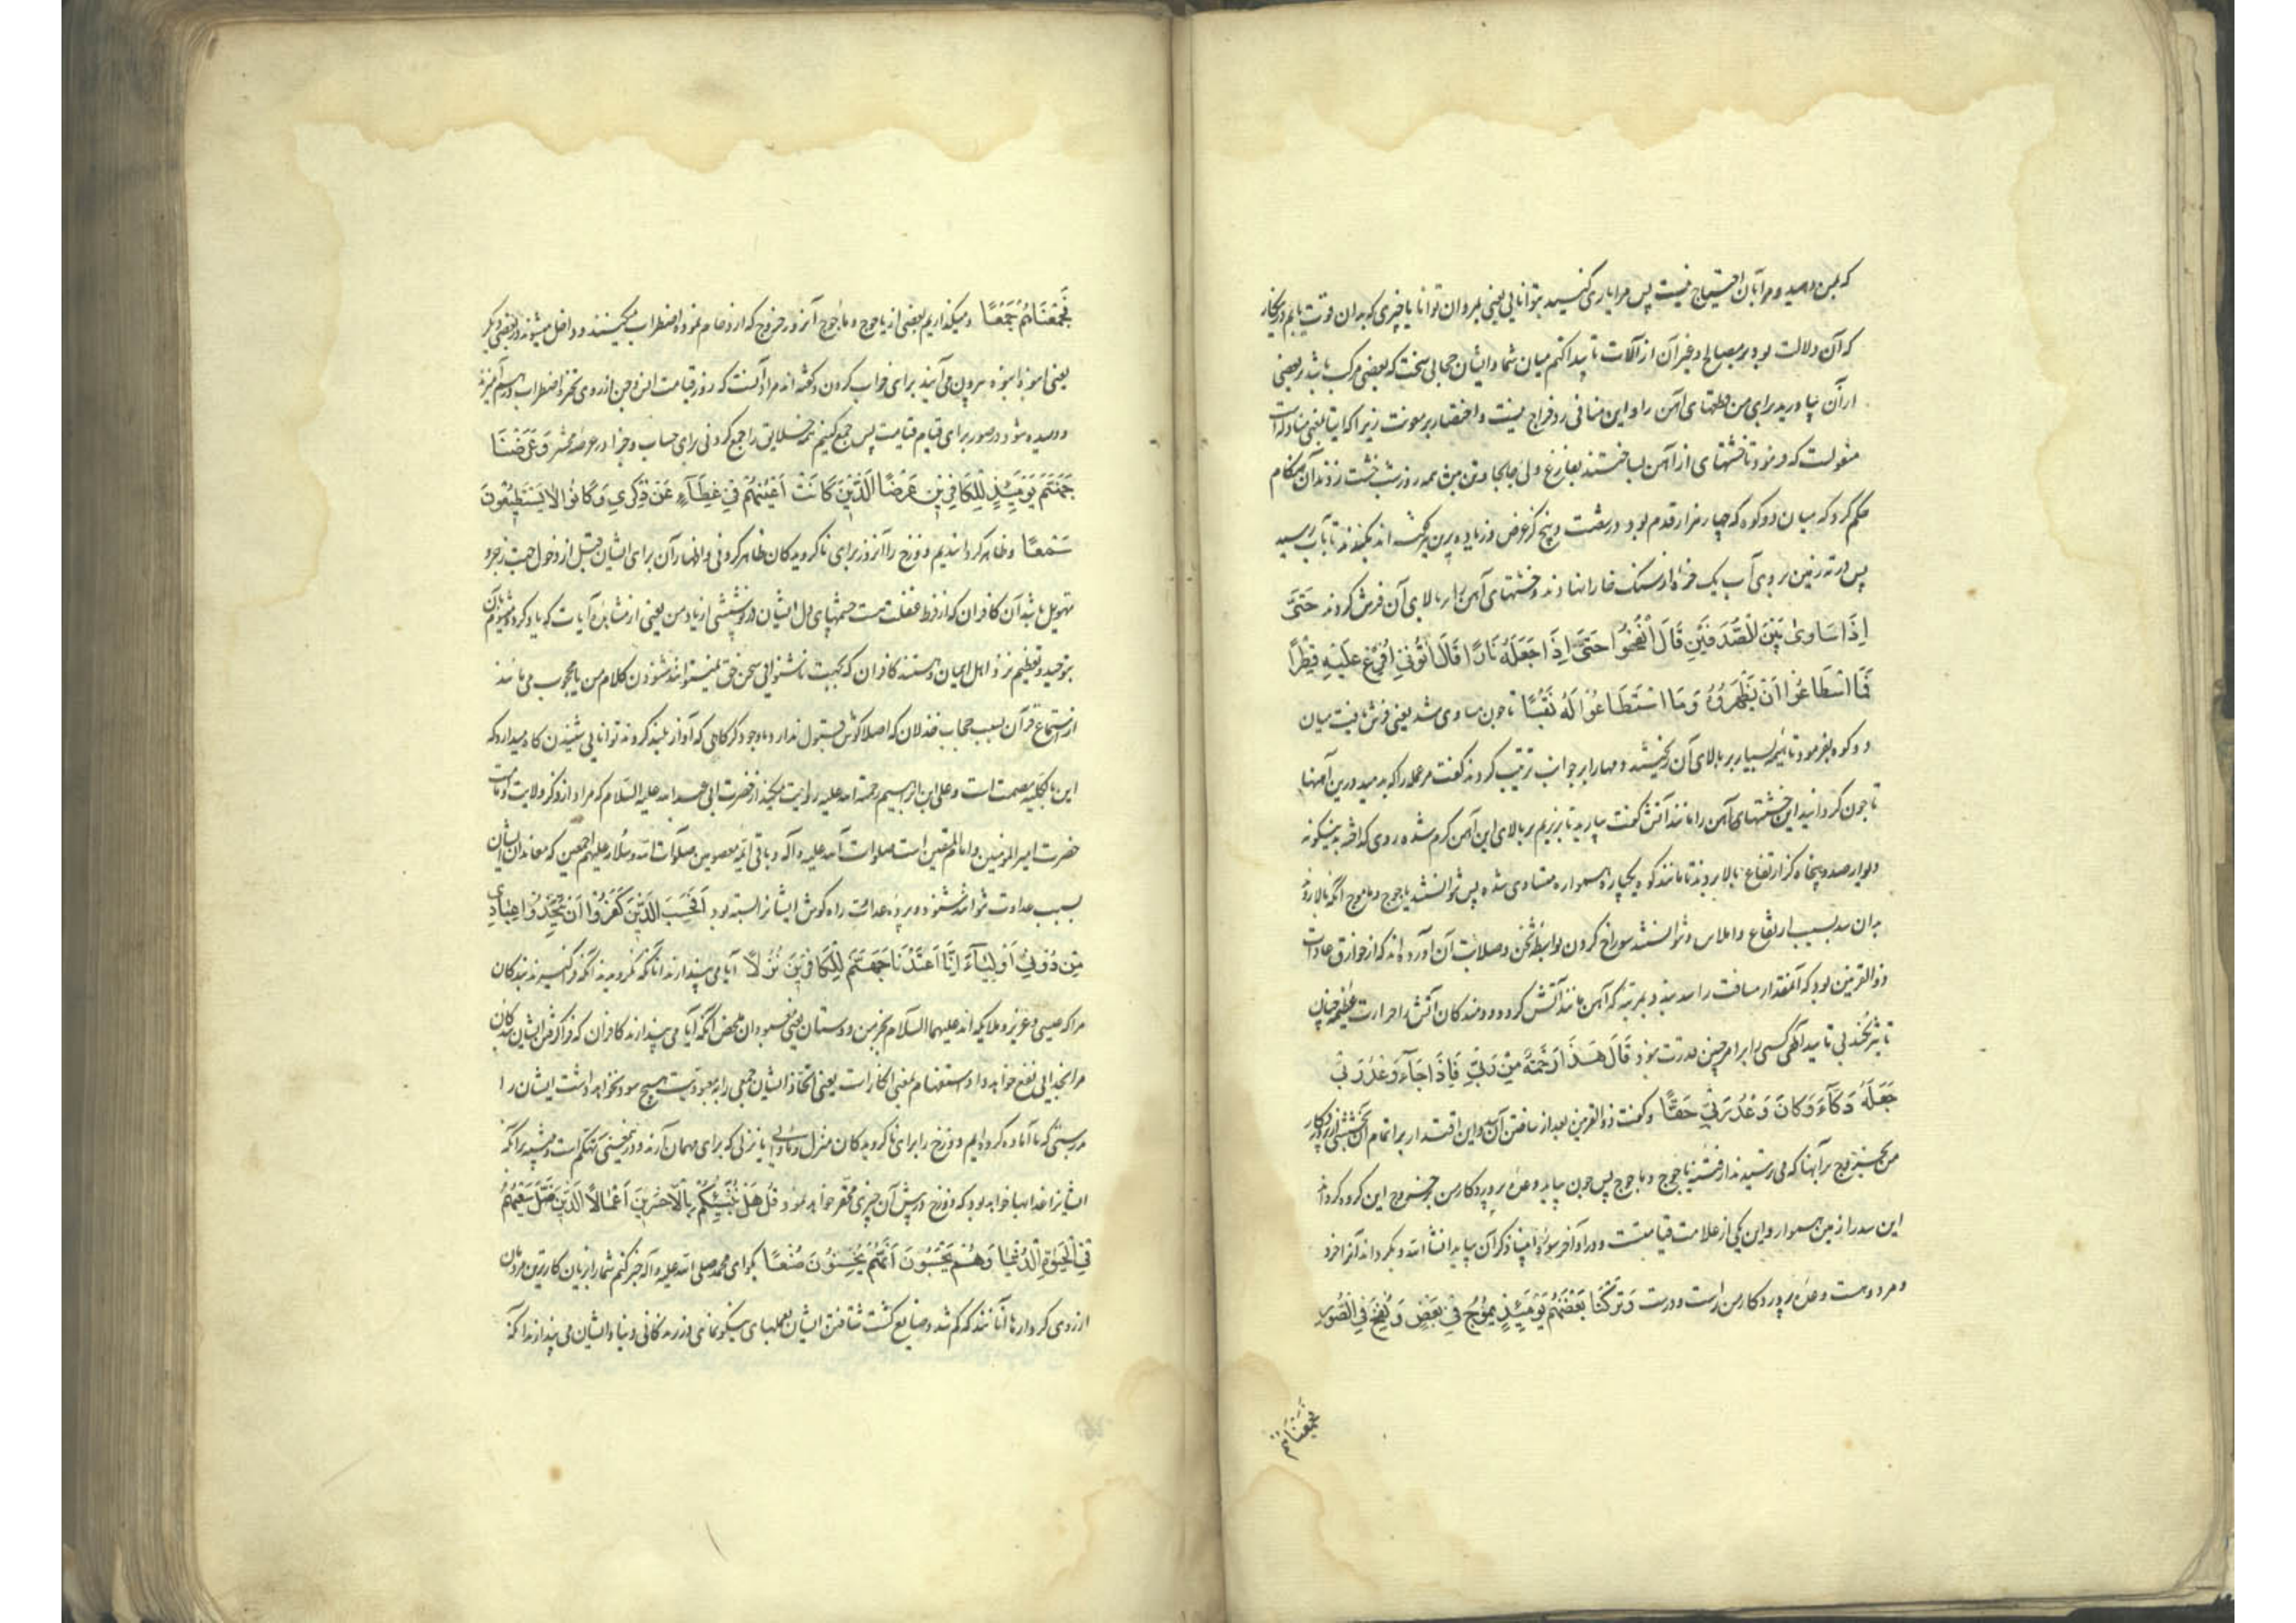 که بمن دهید و مرا بآن احتیاج نیست پس مرا یاری کنیید بتوانایی یعنی بمردان توانا یا چیزی که بدان قوت یابم درینکار
که آن دلالت بود بر مصالح و غیر آن از آلات تا پیدا کنم میان شما و ایشان حجابی سخت که بعضی مرکب باشد بر بعضی
از آن بیاورید برای من قطعهای آهن را و این منافی رد خراج نیست و اختصار بر معونت زیرا که ایتا بمعنی مناولت است
منقولست که فرمود تا خشتهای از آهن بساختند بفارغ و همه روز شب خشت زدند آن هنکام
حکم کرد که میان دو کوه که چهار هزار قدم بود در شصت و پنج کز عرض و زیاده برین هم کفته اند بکندند تا بآب رسید
پس در ته زمین بر روی آب یک خرده از سنک خارا نهادند و خشتهای آهن را بر بالای آن فرش کردند حَتَّى
اِذَا سَاوَى بَيْنَ الصَّدَفَيْنِ قَالَ انْفُخُوا حَتَّى اِذَا جَعَلَهُ نَارًا قَالَ اٰتُونِى اُفْرِغْ عَلَيْهِ قِطْرًا
فَمَا اسْطَاعُوا اَنْ يَظْهَرُوهُ وَمَا اسْتَطَاعُوا لَهُ نَقْبًا تا چون مساوی شد یعنی فرش یافت میان
دو کوه بفرمود تا هیمه بسیار بر بالای آن ریختند و مهارا بر جوانب ترتیب کردند کفت مر عمله را که بدمید درین آهنها
تا چون کردانید این خشتهای آهن را مانند آتش کفت بیارید تا بریزیم بر بالای این آهن کرم شده روی کداخته بدینکونه
دیوار صد و پنجاه کز ارتفاع بالا بردند تا مانند کوه یکپاره هموار مساوی شده پس نتوانستند یاجوج و ماجوج آنکه بالا روند
بران سد بسبب ارتفاع و املاس و نتوانستند سوراخ کردن بواسطه ثخن و صلابت آن آورده اند که از خوارق عادات
ذو القرنین بود که آنمقدار مسافت را سد بندد بمرتبه که آهن مانند آتش کردد و دمندکان آتش را حرارت عظیم چنان
تاثیر نکند بی تایید الهی کسی را بر امر چنین قدرت نبود قَالَ هٰذَا رَحْمَةٌ مِنْ رَبِّى فَاِذَا جَآءَ وَعْدُ رَبِّى
جَعَلَهُ دَكَّآءَ وَكَانَ وَعْدُ رَبِّى حَقًّا و کفت ذو القرنین بعد از ساختن آن سد و این اقتدار بر اتمام آن بخششی از پروردکار
من بر آنها که می ترسیدند از فتنه یاجوج و ماجوج پس چون بیاید وعده پروردکار من بخروج این کروه کرداند
این سد را زمین هموار و این یکی از علامت قیامتست و در آخر سوره انبیا ذکر آن بیاید انشا الله و بکرداند آنرا خرد
و مرد و هست وعده پروردکار من راست و درست وَتَرَكْنَا بَعْضَهُمْ يَوْمَئِذٍ يَمُوجُ فِى بَعْضٍ وَنُفِخَ فِى الصُّورِ
فجمعناهم
فَجَمَعْنَاهُمْ جَمْعًا و میکذاریم بعضی از یاجوج و ماجوج آنروز خروج که ازدحام نموده اضطراب میکنند و داخل میشوند در بعضی دیکر
یعنی انبوه انبوه بیرون می آیند برای خراب کردن و کفته اند مراد آنست که روز قیامت انس و جن از روی تحیر و اضطراب در هم آمیزند
و دمیده شود در صور برای قیام قیامت پس جمع کنیم همه خلایق را جمع کردنی برای حساب و جزا در عرصه محشر وَعَرَضْنَا
جَهَنَّمَ يَوْمَئِذٍ لِلْكَافِرِينَ عَرْضًا الَّذِينَ كَانَتْ اَعْيُنُهُمْ فِى غِطَآءٍ عَنْ ذِكْرِى وَكَانُوا لَا يَسْتَطِيعُونَ
سَمْعًا و ظاهر کردانیدیم دوزخ را آنروز برای ناکرویدکان ظاهر کردنی و اظهار آن برای ایشان قبل از دخول جهت زجر و
تهویل باشد آن کافران که از فرط غفلت هست چشمهای دل ایشان در پوششی از یاد من یعنی از مشاهده آیات که یاد کرده میشوم بآن
بتوحید و تعظیم نزد اهل ایمان و هستند کافران که بجهت ناشنوایی سخن حق نمیتوانند شنودن کلام من یا محجوب می مانند
از استماع قرآن بسبب حجاب خذلان که اصلا کوش قبول ندارد باوجود کرکاهی که آواز بلند کردند توانایی شنیدن کاه میدارد که
این بالکلیه مصمت است و علی ابن ابراهیم رحمة الله علیه روایت میکند از حضرت ابی عبد الله علیه السلام که مراد از ذکر ولایت و امامت
حضرت امیر المؤمنین و امام المتقین است صلوات الله علیه و آله و باقی ائمه معصومین صلوات الله و سلامه علیهم اجمعین که معاندان ایشان
بسبب عداوت نتوانند شنود و پرده عداوت راه کوش ایشانرا بسته بود اَفَحَسِبَ الَّذِينَ كَفَرُوا اَنْ يَتَّخِذُوا عِبَادِى
مِنْ دُونِى اَوْلِيَآءَ اِنَّا اَعْتَدْنَا جَهَنَّمَ لِلْكَافِرِينَ نُزُلًا آیا می پندارند آنانکه نکرویدند آنکه فراکیرند بندکان
مرا که عیسی و عزیر و ملایکه اند علیهما السلام بجز من دوستان یعنی معبودان محض آنکه آیا می پندارند کافران که فراکرفتن ایشان بندکان
مرا بخدایی نفع خواهد داد استفهام بمعنی انکار است یعنی اتخاذ ایشان جمعی را به معبودیت هیچ سود نخواهد داشت ایشان را
بدرستی که ما آماده کرده ایم دوزخ را برای ناکرویدکان منزل و ماوایی یا نزلی که برای مهمان آرند و درینمعنی تهکم است و تنبیه بر آنکه
ایشانرا عذابها خواهد بود که دوزخ در پیش آن چیزی محقر خواهد نمود قُلْ هَلْ نُنَبِّئُكُمْ بِالْاَخْسَرِينَ اَعْمَالًا الَّذِينَ ضَلَّ سَعْيُهُمْ
فِى الْحَيٰوةِ الدُّنْيَا وَهُمْ يَحْسَبُونَ اَنَّهُمْ يُحْسِنُونَ صُنْعًا بکو ای محمد صلی الله علیه و آله خبر کنم شما را بزیان کارترین مردمان
از روی کردارها آنانند که کم شد و ضایع کشت شتافتن ایشان بعملهای نیکو نمای در زندکانی دنیا و ایشان می پندارند آنکه